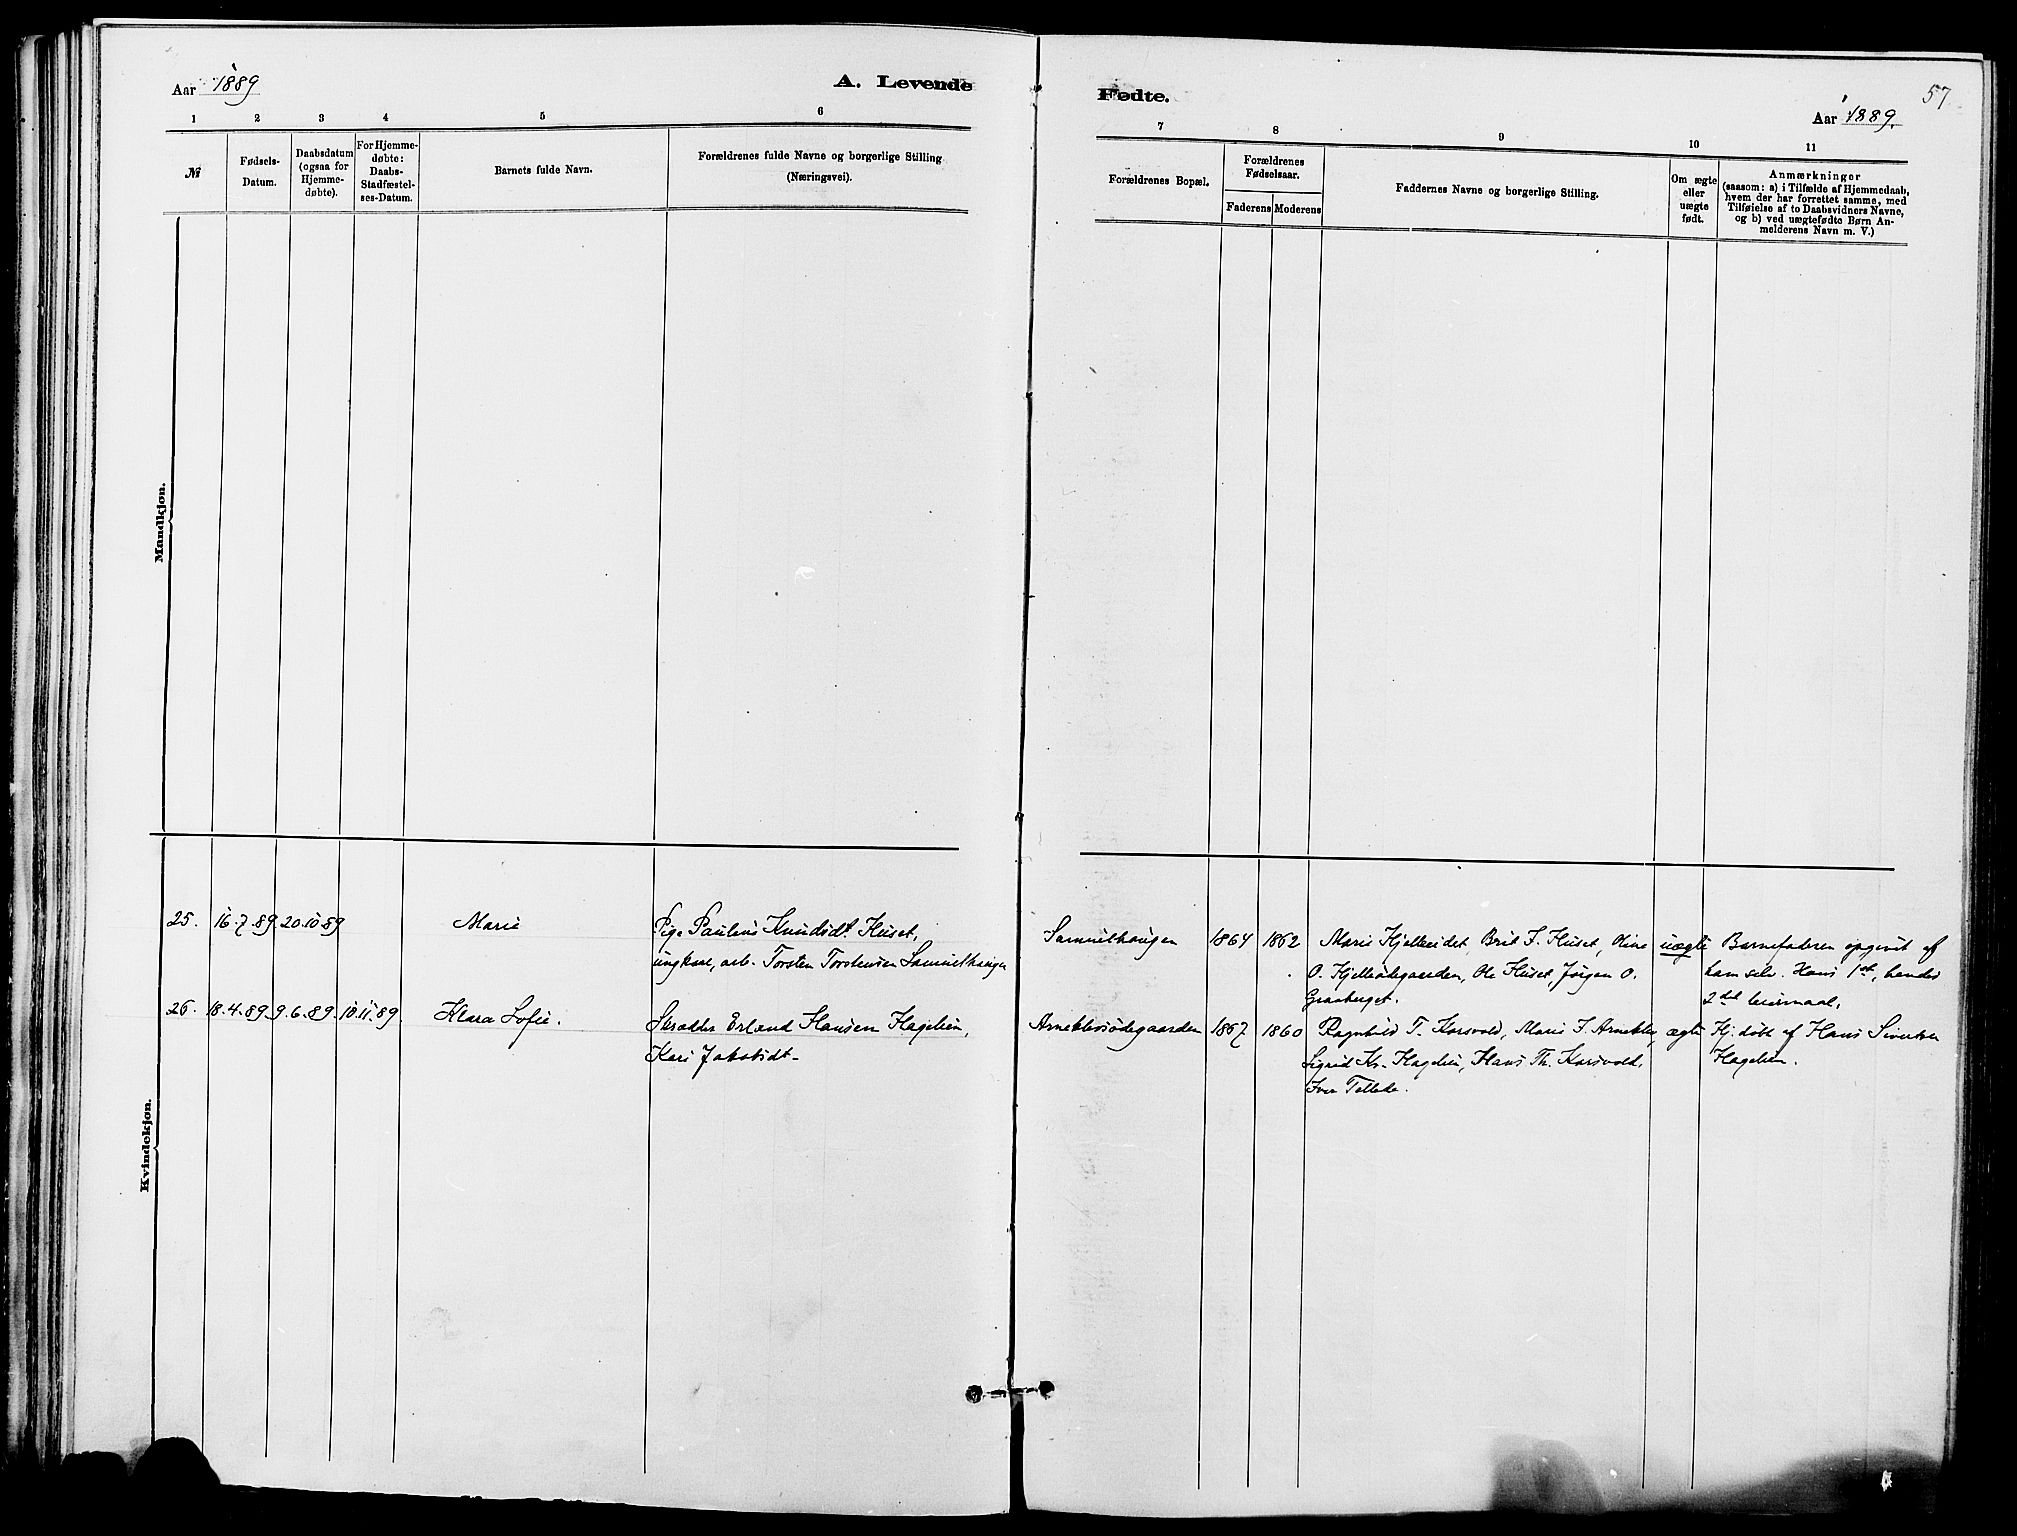 Aar 1889
A. Levende
Fødte.
57
Aar 1889.
1 2 3 4 5 6
7 8 9 10 11
№
Fødsels-
Datum.
Daabsdatum
(ogsaa for
Hjemme-
døbte).
For Hjemme-
døbte:
Daabs-
Stadfæstel-
ses-Datum.
Barnets fulde Navn.
Forældrenes fulde Navne og borgerlige Stilling
(Næringsvei).
Forældrenes Bopæl.
Forældrenes
Fødselsaar.
Faderens
Moderens
Faddernes Navne og borgerlige Stilling.
Om ægte
eller
uægte
født.
Anmærkninger
(saasom: a) i Tilfælde af Hjemmedaab,
hvem der har forrettet samme, med
Tilføielse af to Daabsvidners Navne,
og b) ved uægtefødte Børn An-
melderens Navn m. V.)
Mandkjøn.
Kvindekjøn.
25. 16.7.89 20.10.89
Marie
Pige Pauline Knudsdt. Huset,
ungkarl, arb. Torsten Torstensen Samuelhaugen
Samuelhaugen
1864
1862
Marie Kjelleidet, Brit I. Huset, Oline
O. Kjelleødegaarden, Ole Huset, Jørgen O.
Graaberget.
uægte
Barnefaderen opgivet af
ham selv. Hans 1ste, hendes
2det leiermaal.
26. 18.4.89. 9.6.89. 10.11.89.
Klara Sofie.
Skrædder Erland Hansen Hagelien,
Kari Jakobsdt.
Arneklevsødegaarden
1867
1860
Ragnhild T. Korsvold, Marie J. Arneklev,
Sigrid Kr. Hagelien, Hans Th. Korsvold,
Iver Tellede.
ægte
Hj. døbt af Hans Sivertsen
Hagelien.